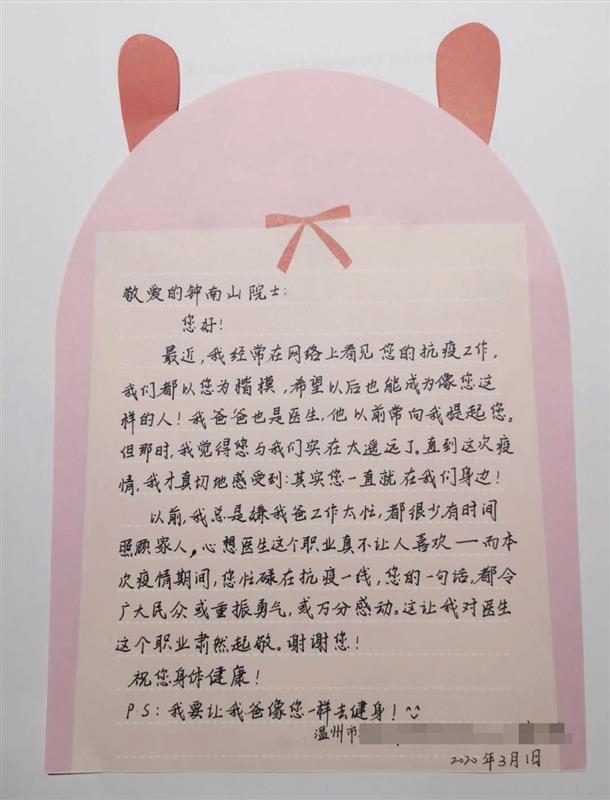 敬爱的钟南山院士:
您好!
最近,我经常在网络上看见您的抗疫工作,
我们都以您为楷模,希望以后也能成为像您这
样的人!我爸爸也是医生,他以前常向我提起您。
但那时,我觉得您与我们实在太遥远了。直到这次疫
情,我才真切地感受到:其实您一直就在我们身边!
以前,我总是嫌我爸工作太忙,都很少有时间
照顾家人,心想医生这个职业真不让人喜欢——而本
次疫情期间,您忙碌在抗疫一线,您的一句话,都令
广大民众或重振勇气,或万分感动。这让我对医生
这个职业肃然起敬。谢谢您!
祝您身体健康!
PS:我要让我爸像您一样去健身!
温州市
2020年3月1日